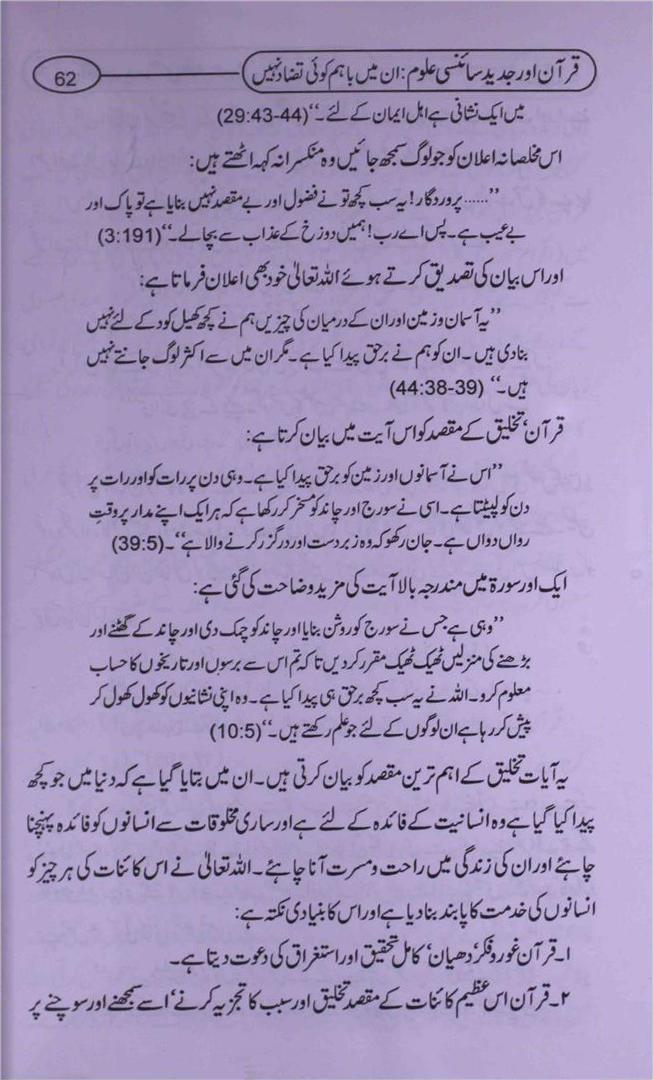 قرآن اور جدید سائنسی علوم : ان میں باہم کوئی تضاد نہیں
62
میں ایک نشانی ہے اہل ایمان کے لئے۔‘‘ (29:43-44)
اس مخلصانہ اعلان کو جو لوگ سمجھ جائیں وہ منکسرانہ کہہ اٹھتے ہیں:
’’......پروردگار! یہ سب کچھ تو نے فضول اور بے مقصد نہیں بنایا ہے تو پاک اور
بے عیب ہے۔ پس اے رب! ہمیں دوزخ کے عذاب سے بچالے۔‘‘ (3:191)
اور اس بیان کی تصدیق کرتے ہوئے اللہ تعالیٰ خود بھی اعلان فرماتا ہے:
’’یہ آسمان و زمین اور ان کے درمیان کی چیزیں ہم نے کچھ کھیل کود کے لئے نہیں
بنا دی ہیں۔ ان کو ہم نے برحق پیدا کیا ہے۔ مگر ان میں سے اکثر لوگ جانتے نہیں
ہیں۔‘‘ (44:38-39)
قرآن‘ تخلیق کے مقصد کو اس آیت میں بیان کرتا ہے:
’’اس نے آسمانوں اور زمین کو برحق پیدا کیا ہے۔ وہی دن پر رات کو اور رات پر
دن کو لپیٹتا ہے۔ اسی نے سورج اور چاند کو مسخر کر رکھا ہے کہ ہر ایک اپنے مدار پر وقتِ
رواں دواں ہے۔ جان رکھو کہ وہ زبردست اور درگزر کرنے والا ہے‘‘۔ (39:5)
ایک اور سورۃ میں مندرجہ بالا آیت کی مزید وضاحت کی گئی ہے:
’’وہی ہے جس نے سورج کو روشن بنایا اور چاند کو چمک دی اور چاند کے گھٹنے اور
بڑھنے کی منزلیں ٹھیک ٹھیک مقرر کر دیں تا کہ تم اس سے برسوں اور تاریخوں کا حساب
معلوم کرو۔ اللہ نے یہ سب کچھ برحق ہی پیدا کیا ہے۔ وہ اپنی نشانیوں کو کھول کھول کر
پیش کر رہا ہے ان لوگوں کے لئے جو علم رکھتے ہیں۔‘‘ (10:5)
یہ آیات تخلیق کے اہم ترین مقصد کو بیان کرتی ہیں۔ ان میں بتایا گیا ہے کہ دنیا میں جو کچھ
پیدا کیا گیا ہے وہ انسانیت کے فائدہ کے لئے ہے اور ساری مخلوقات سے انسانوں کو فائدہ پہنچنا
چاہئے اور ان کی زندگی میں راحت و مسرت آنا چاہئے۔ اللہ تعالیٰ نے اس کائنات کی ہر چیز کو
انسانوں کی خدمت کا پابند بنا دیا ہے اور اس کا بنیادی نکتہ ہے:
۱۔ قرآن غور و فکر‘ دھیان‘ کامل تحقیق اور استغراق کی دعوت دیتا ہے۔
۲۔ قرآن اس عظیم کائنات کے مقصد تخلیق اور سبب کا تجزیہ کرنے‘ اسے سمجھنے اور سوچنے پر